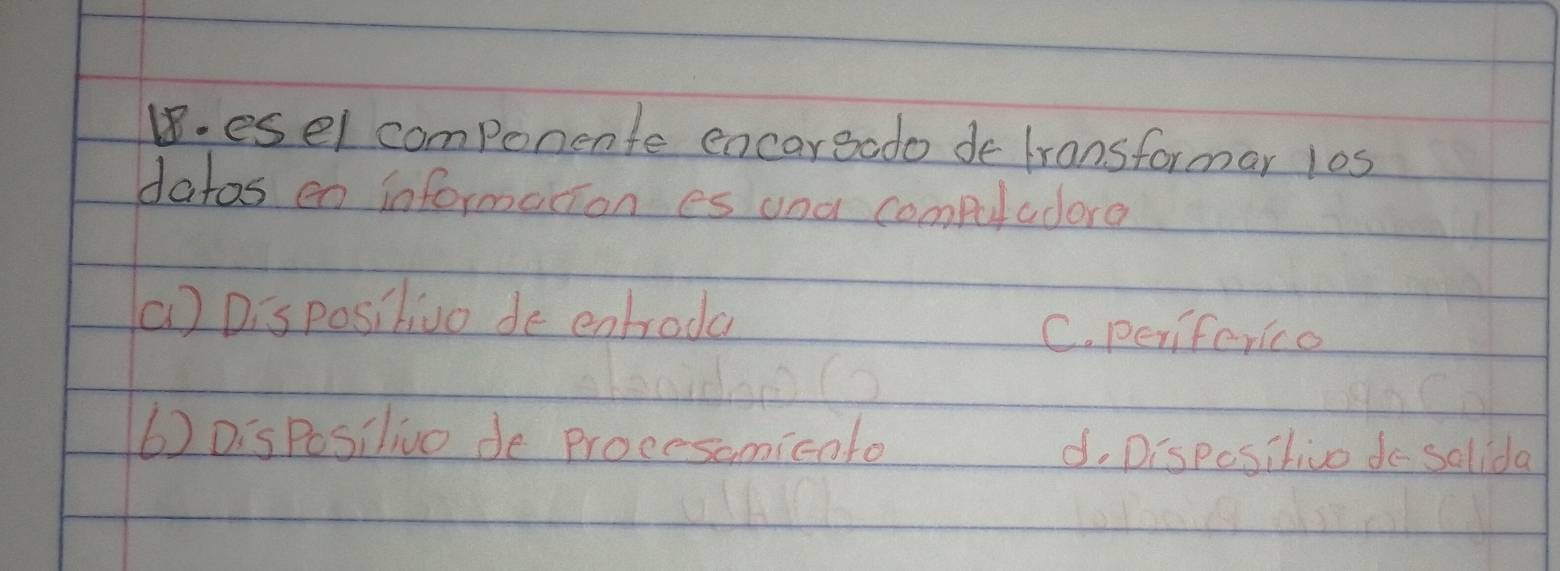 18. es el componente encargado de transformar los
datos en informacion es una computadora
a) Dispositivo de entrada
C. periferico
b) Dispositivo de Procesamiento
d. Dispositivo de salida